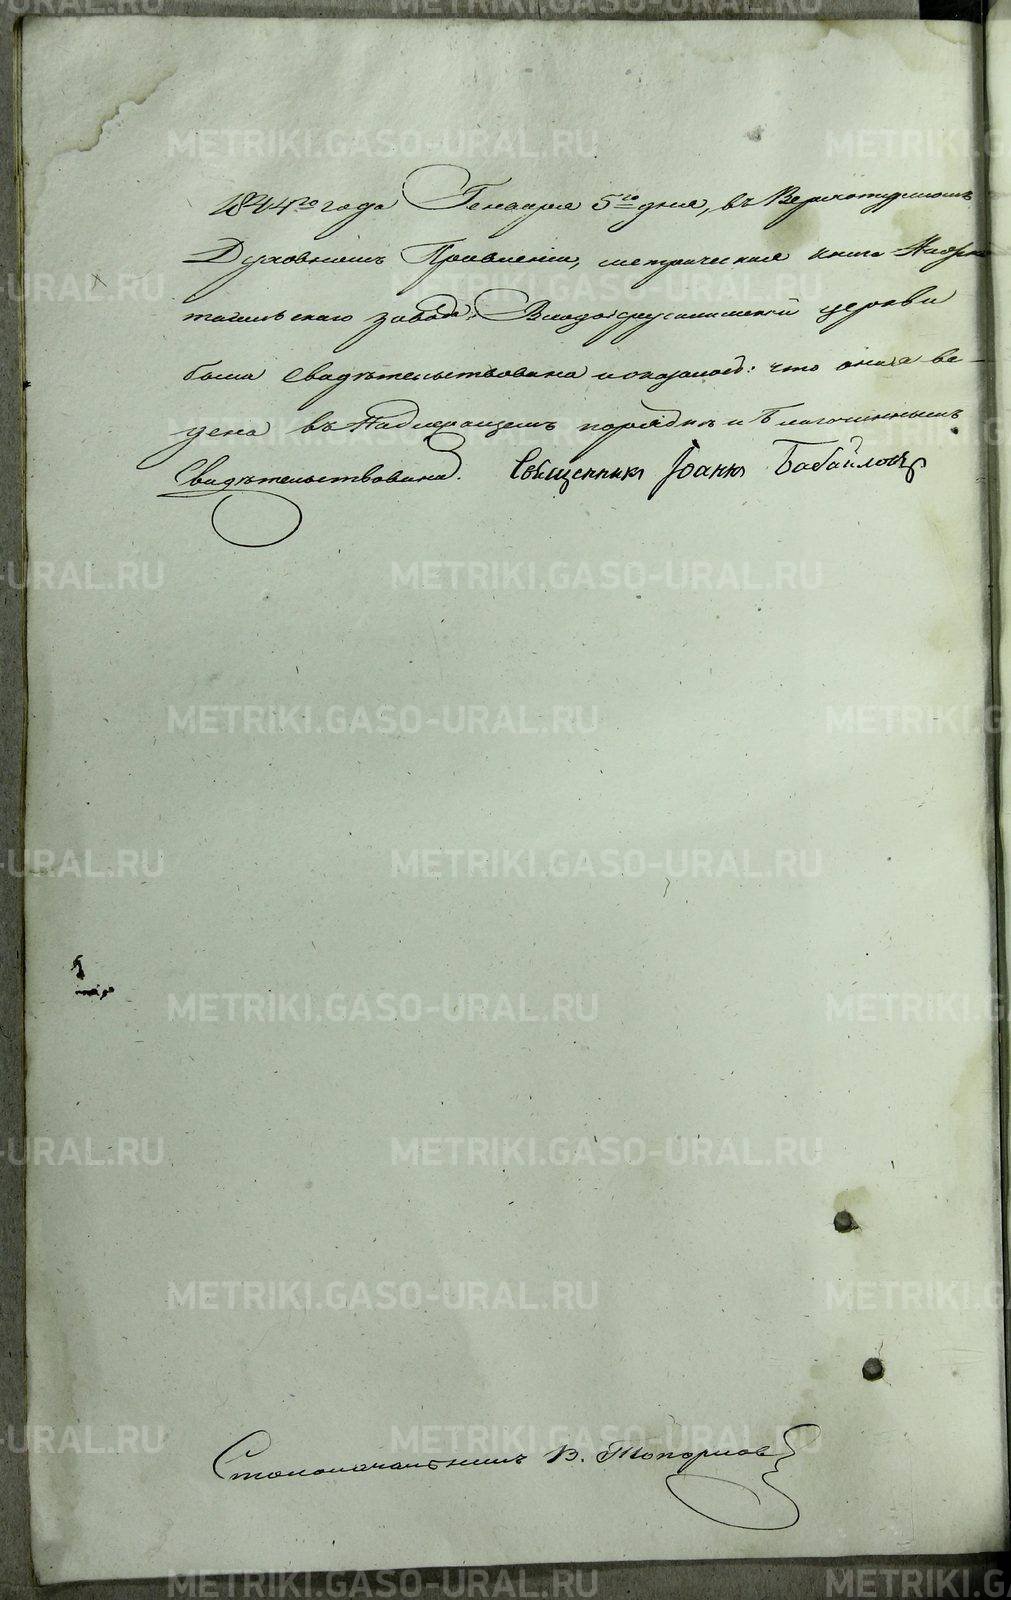 1844го года Генваря 5го дня, въ Верхотурскомъ
Духовномъ Правленіи, метрическая книга Нижне
тагильскаго завода, Входоіерусалимской церкви
была свидѣтельствована и оказалось: что оная ве-
дена въ надлежащемъ порядкѣ и Благочиннымъ
Свидѣтельствована. Священникъ Іоаннъ Бабайловъ
Столоначальникъ В. Топорковъ
METRIKI.GASO-URAL.RU